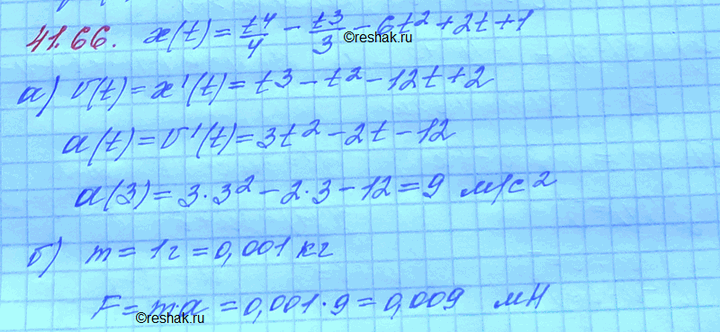 41.66. x(t) = t⁴/4 - t³/3 - 6t² + 2t + 1
©reshak.ru
а) v(t) = x'(t) = t³ - t² - 12t + 2
a(t) = v'(t) = 3t² - 2t - 12
a(3) = 3·3² - 2·3 - 12 = 9 м/с²
б) m = 1г = 0,001 кг
F = m·a = 0,001·9 = 0,009 мН
©reshak.ru